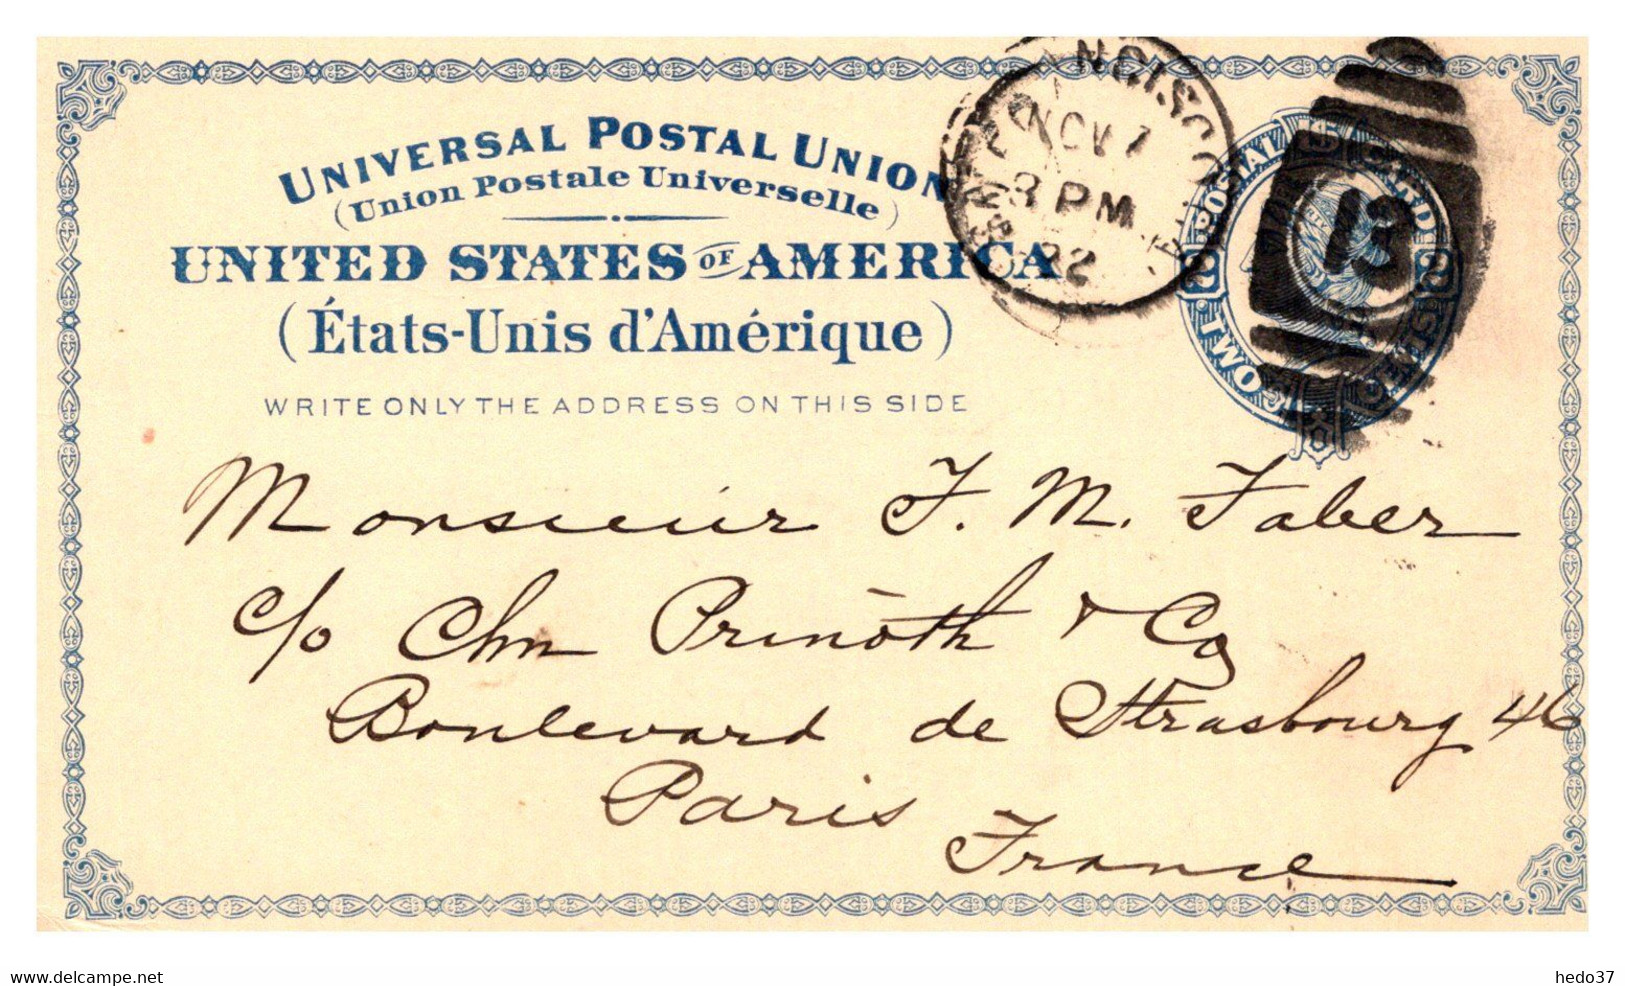 UNIVERSAL POSTAL UNION
(Union Postale Universelle)
UNITED STATES OF AMERICA
(États-Unis d'Amérique)
WRITE ONLY THE ADDRESS ON THIS SIDE
NOV 7
3 PM
POSTAL CARD
2 2
TWO CENTS
13
Monsieur F. M. Faber
c/o Chn Prinoth & Co
Boulevard de Strasbourg 46
Paris
France
www.delcampe.net
hedo37